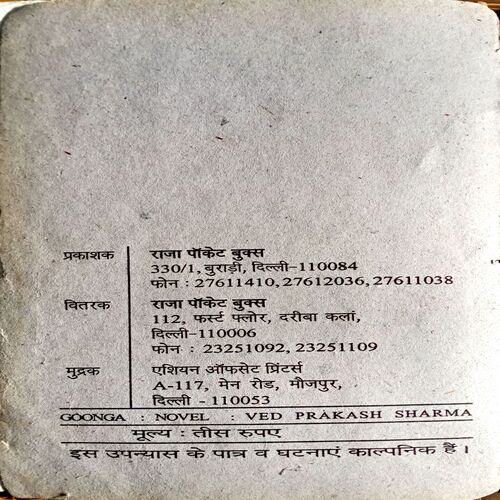 प्रकाशक राजा पॉकेट बुक्स
330/1, बुराड़ी, दिल्ली-110084
फोन : 27611410, 27612036, 27611038
वितरक राजा पॉकेट बुक्स
112, फर्स्ट फ्लोर, दरीबा कलां,
दिल्ली-110006
फोन : 23251092, 23251109
मुद्रक एशियन ऑफसेट प्रिंटर्स
A-117, मेन रोड, मौजपुर,
दिल्ली - 110053
GOONGA : NOVEL : VED PRAKASH SHARMA
मूल्य : तीस रुपए
इस उपन्यास के पात्र व घटनाएं काल्पनिक हैं।